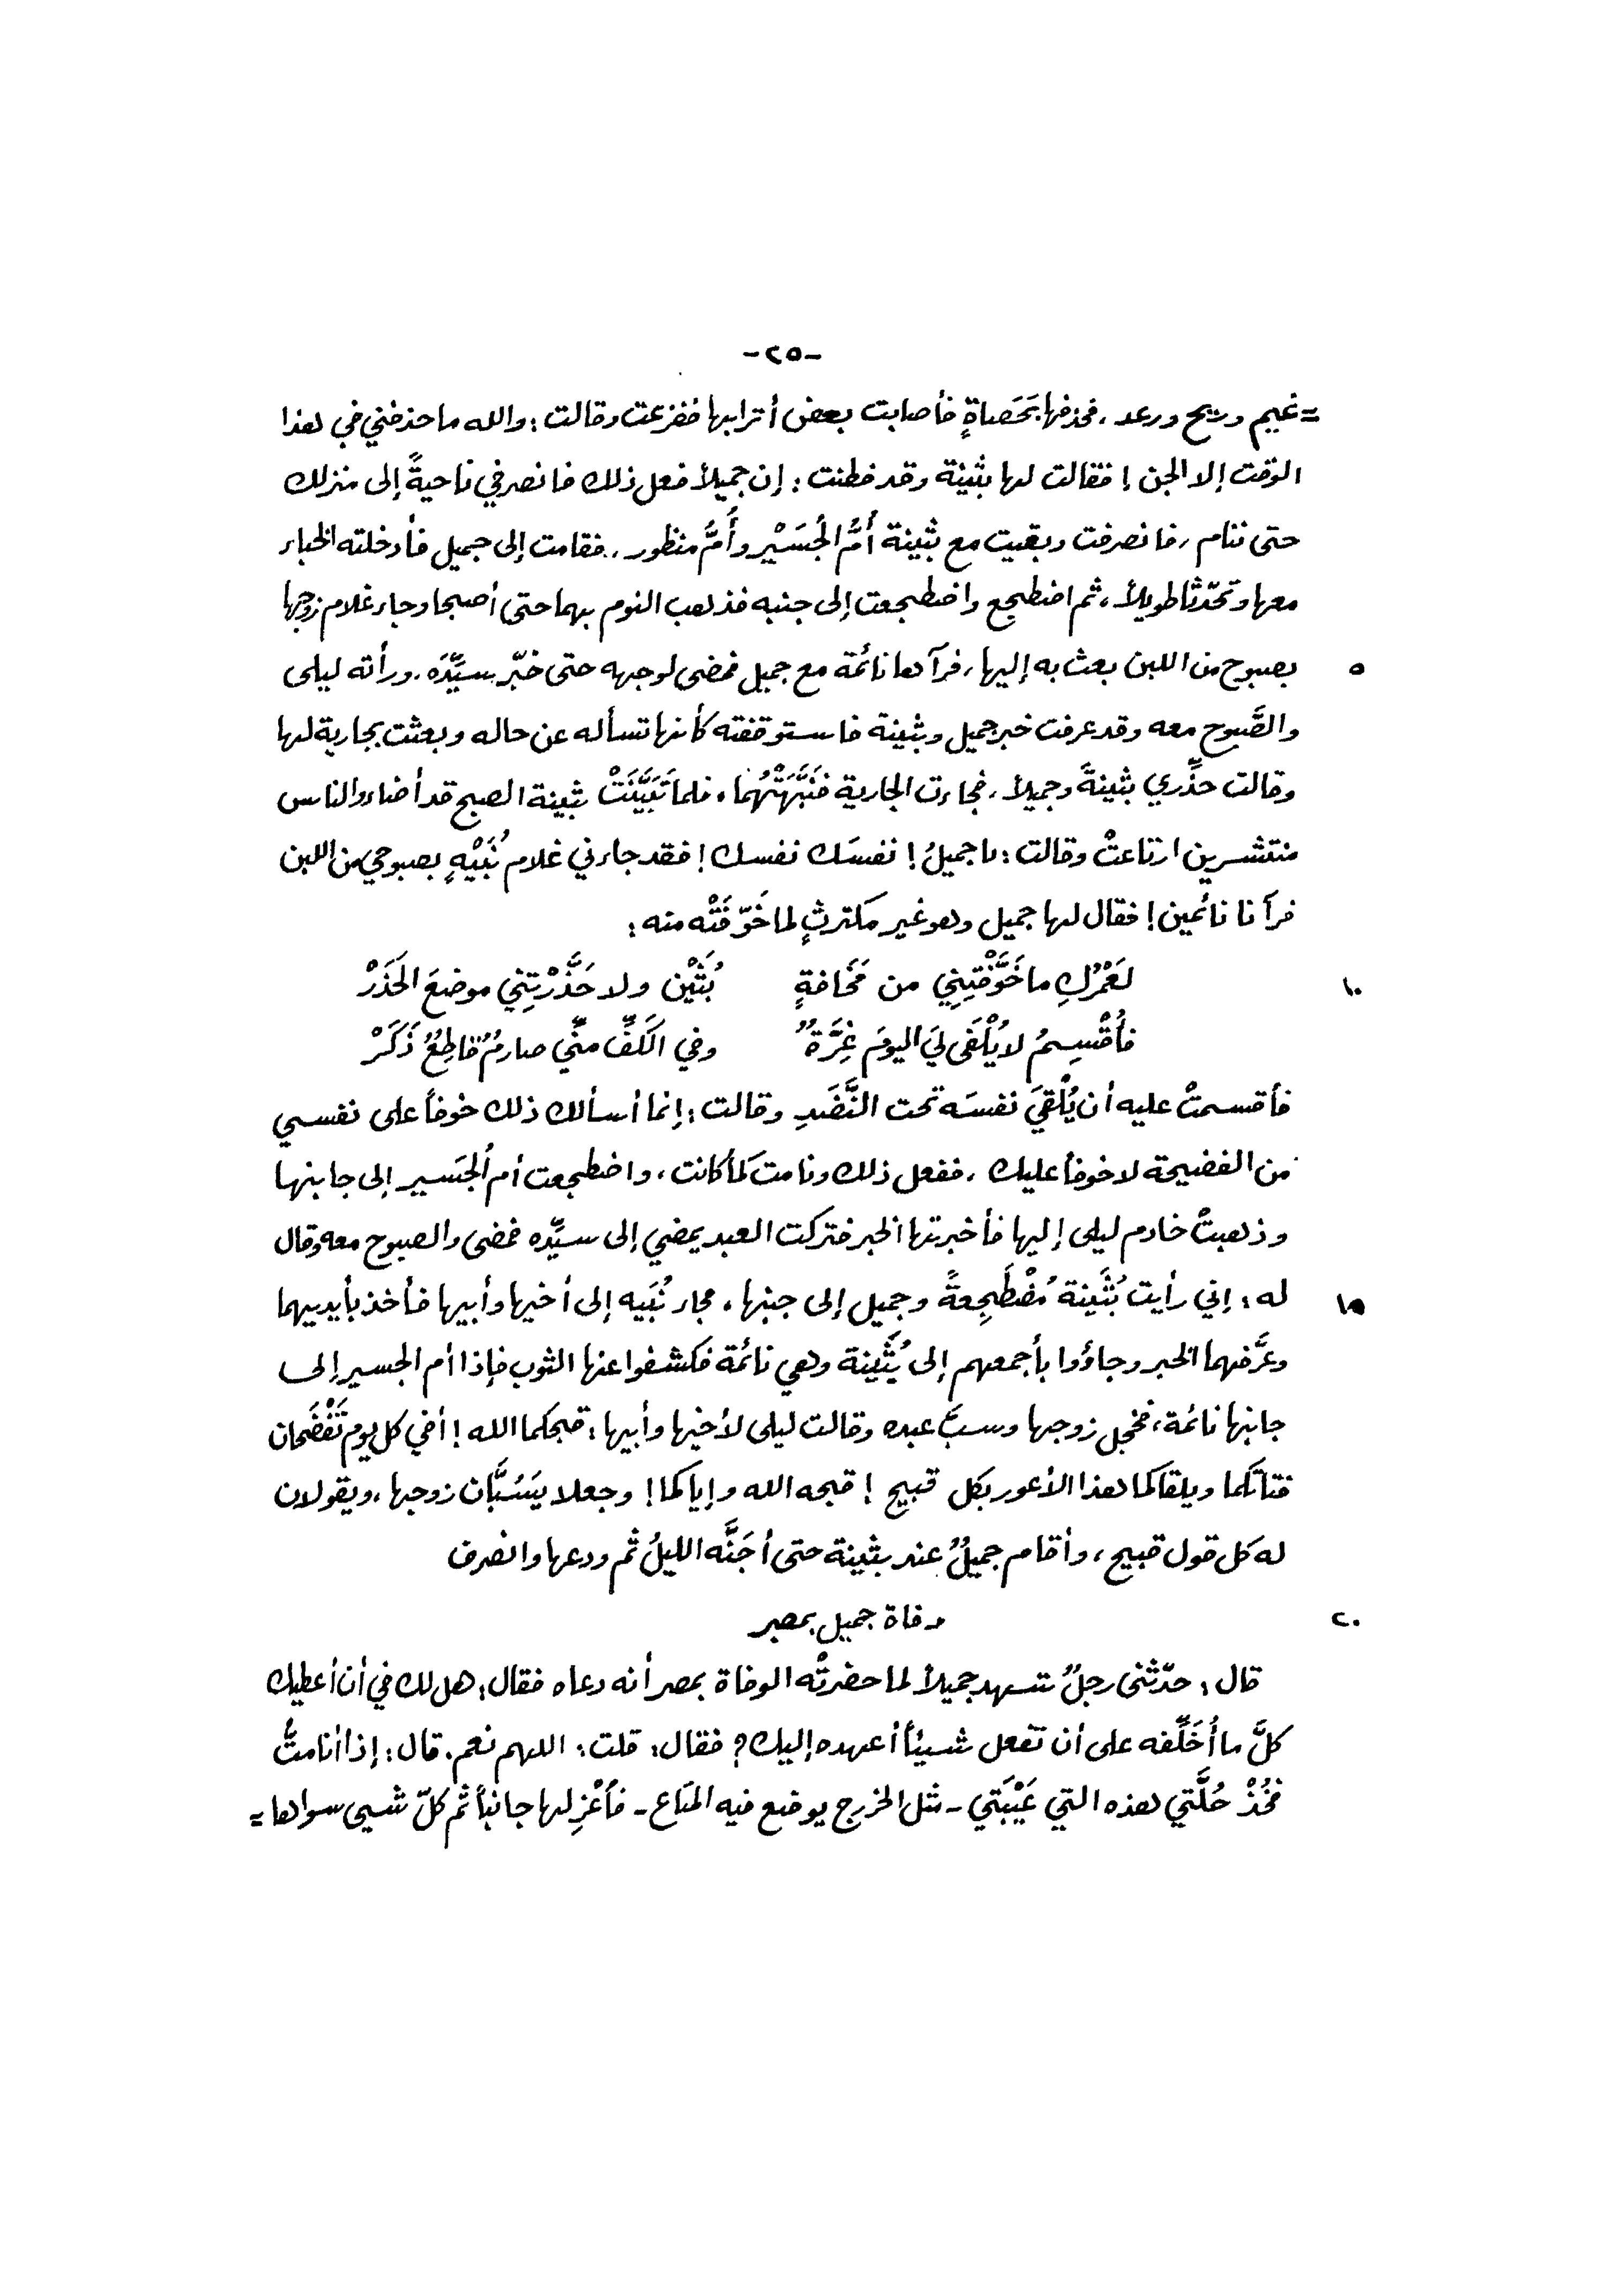 -٢٥-
= غيم وريح ورعد، فحذفها بحَصَاةٍ فأصابت بعض أترابها ففزعت وقالت: والله ما حذفني في هذا
الوقت إلا الجن! فقالت لها بثينة وقد فطنت: إن جميلاً فعل ذلك فانصرفي ناحيةً إلى منزلك
حتى ننام، فانصرفت وبقيت مع بثينة أمُّ الجُسَيْر وأُمُّ منظور، فقامت إلى جميل فأدخلته الخباء
معها وتحدّثا طويلاً، ثم اضطجع واضطجعت إلى جنبه فذهب النوم بهما حتى أصبحا وجاء غلام زوجها
٥ بصبوح من اللبن بعث به إليها، فرآها نائمة مع جميل فمضى لوجهه حتى خبّر سيِّدَه، ورأته ليلى
والصَّبوح معه وقد عرفت خبر جميل وبثينة فاستوقفته كأنها تسأله عن حاله وبعثت بجارية لها
وقالت حذِّري بثينةَ وجميلاً، فجاءت الجارية فنَبَّهَتْهُما، فلما تَبَيَّنَتْ بثينة الصبح قد أضاء والناس
منتشرين ارتاعتْ وقالت: يا جميلُ! نفسَك نفسك! فقد جاءني غلام نُبَيْهٍ بصبوحي من اللبن
فرآنا نائمين! فقال لها جميل وهو غير مكترثٍ لما خَوّفَتْه منه:
١٠ لعَمْرُكِ ما خَوَّفْتِنِي من مَخَافةٍ بُثَيْن ولا حَذَّرْتِنِي موضعَ الحَذَرْ
فأُقْسِمُ لا يُلْفَى ليَ اليومَ غِرَّةٌ وفي الكَفِّ منِّي صارمٌ قاطِعٌ ذَكَرْ
فأقسمتْ عليه أن يُلْقيَ نفسَه تحت النَّضَدِ وقالت: إنما أسألك ذلك خوفاً على نفسي
من الفضيحة لا خوفاً عليك، ففعل ذلك ونامت كما كانت، واضطجعت أم الجُسَير إلى جانبها
وذهبتْ خادم ليلى إليها فأخبرتها الخبر فتركت العبد يمضي إلى سيِّده فمضى والصبوح معه وقال
١٥ له: إني رأيت بُثَينة مُضْطَجِعةً وجميل إلى جنبها، فجاء نُبَيه إلى أخيها وأبيها فأخذ بأيديهما
وعَرَّفهما الخبر وجاؤوا بأجمعهم إلى بُثَينة وهي نائمة فكشفوا عنها الثوب فإذا أم الجسير إلى
جانبها نائمة، فخجل زوجها وسبَّ عبده وقالت ليلى لأخيها وأبيها: قبحكما الله! أفي كل يوم تَفْضَحان
فتاتكما ويلقاكما هذا الأعور بكل قبيح! قبحه الله وإياكما! وجعلا يَسُبَّان زوجها، ويقولان
له كل قول قبيح، وأقام جميلٌ عند بثينة حتى أجَنَّه الليلُ ثم ودعها وانصرف
٢٠ وفاة جميل بمصر
قال: حدّثني رجلٌ شهد جميلاً لما حضرتْه الوفاة بمصر أنه دعاه فقال: هل لك في أن أعطيك
كلَّ ما أُخَلِّفه على أن تفعل شيئاً أعهده إليك؟ فقال: قلت: اللهم نعم. قال: إذا أنا متُّ
فخُذْ حُلَّتي هذه التي عَيْبَتي - مثل الخرج يوضع فيه المتاع - فأعْزِلها جانباً ثم كلّ شيئ سواها =